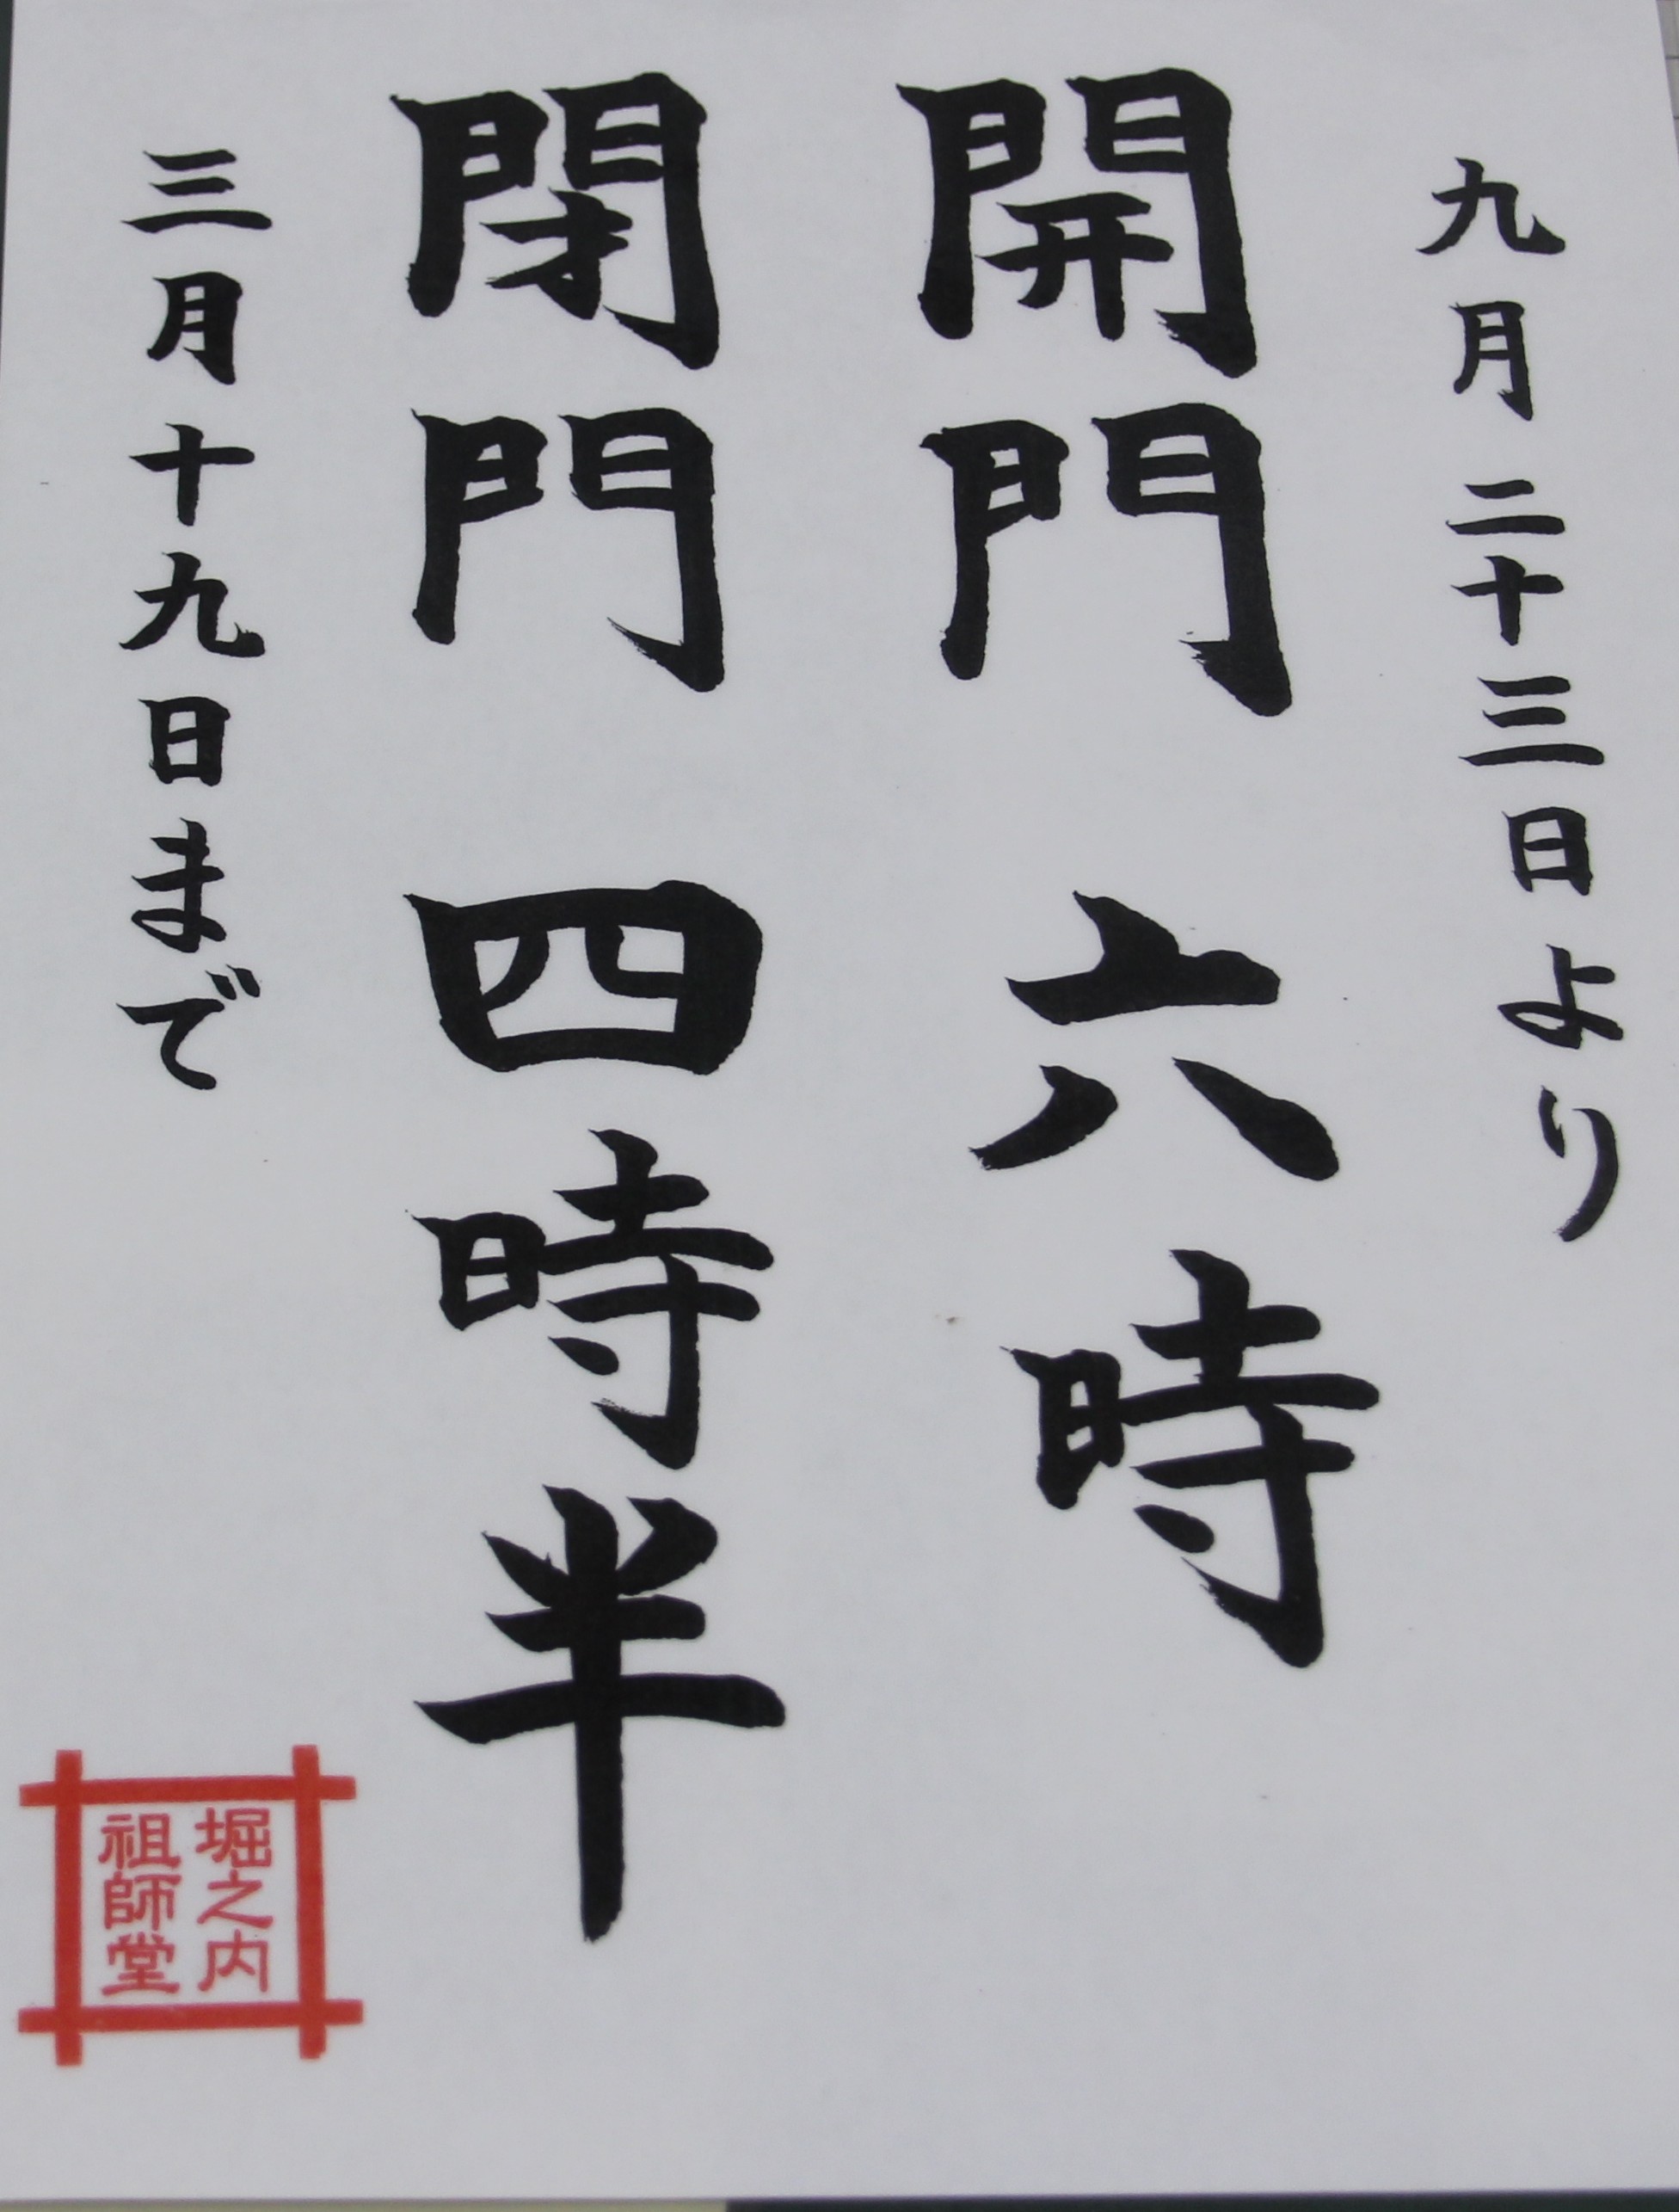 九月二十三日より
開門 六時
閉門 四時半
三月十九日まで
堀之内
祖師堂